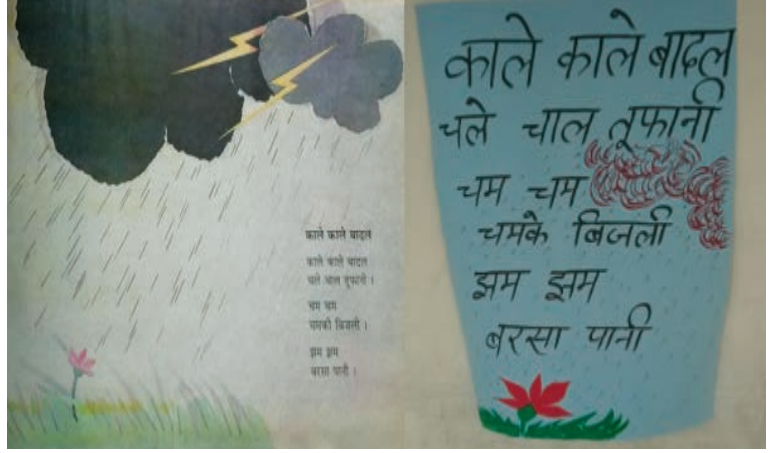 काले काले बादल
काले काले बादल
चले चाल तूफानी ।
चम चम
चमकी बिजली ।
झम झम
बरसा पानी ।
काले काले बादल
चले चाल तूफानी
चम चम
चमके बिजली
झम झम
बरसा पानी